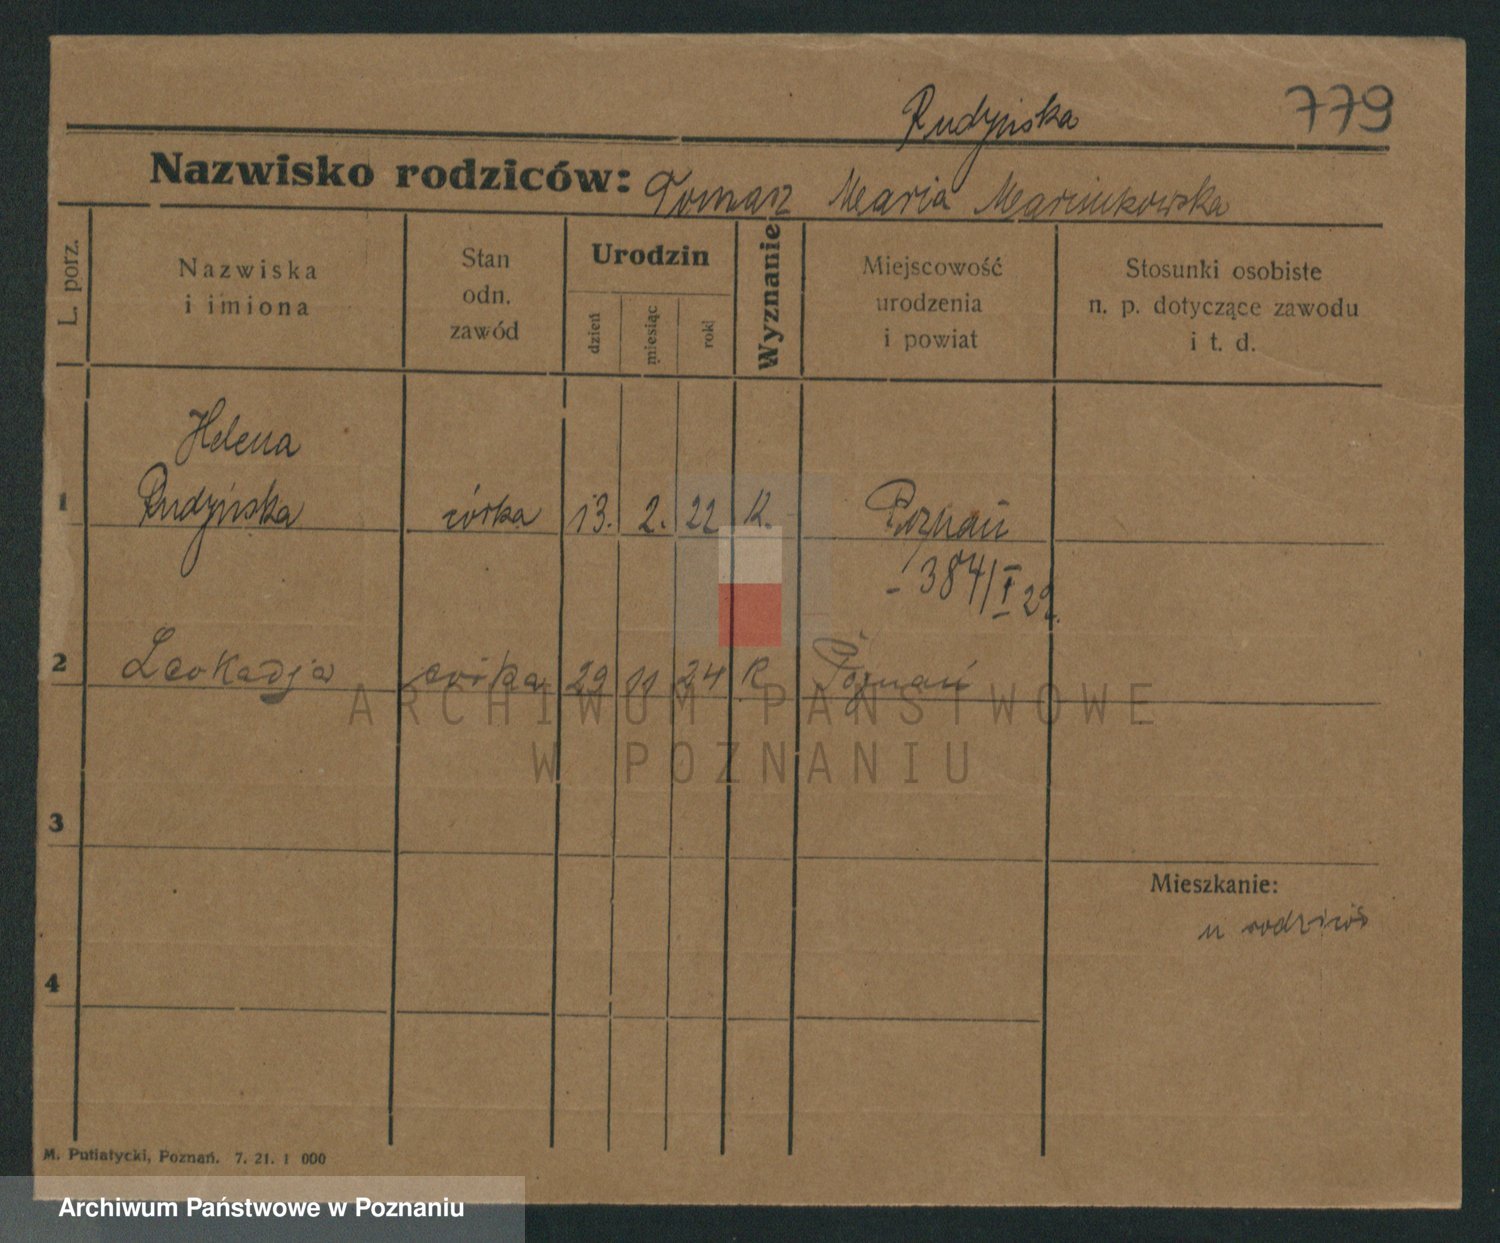 Rudzińska 779
Nazwisko rodziców: Tomasz Maria Marcinkowska
L. porz.
Nazwiska
i imiona
Stan
odn.
zawód
Urodzin
dzień
miesiąc
rok
Wyznanie
Miejscowość
urodzenia
i powiat
Stosunki osobiste
n. p. dotyczące zawodu
i t. d.
Helena
1 Rudzińska córka 13. 2. 22 K. Poznań
- 384/I 22.
2 Leokadja córka 29 11 24 K Poznań
ARCHIWUM PAŃSTWOWE
W POZNANIU
3
Mieszkanie:
u rodziców
4
M. Putiatycki, Poznań. 7. 21. 1 000
Archiwum Państwowe w Poznaniu